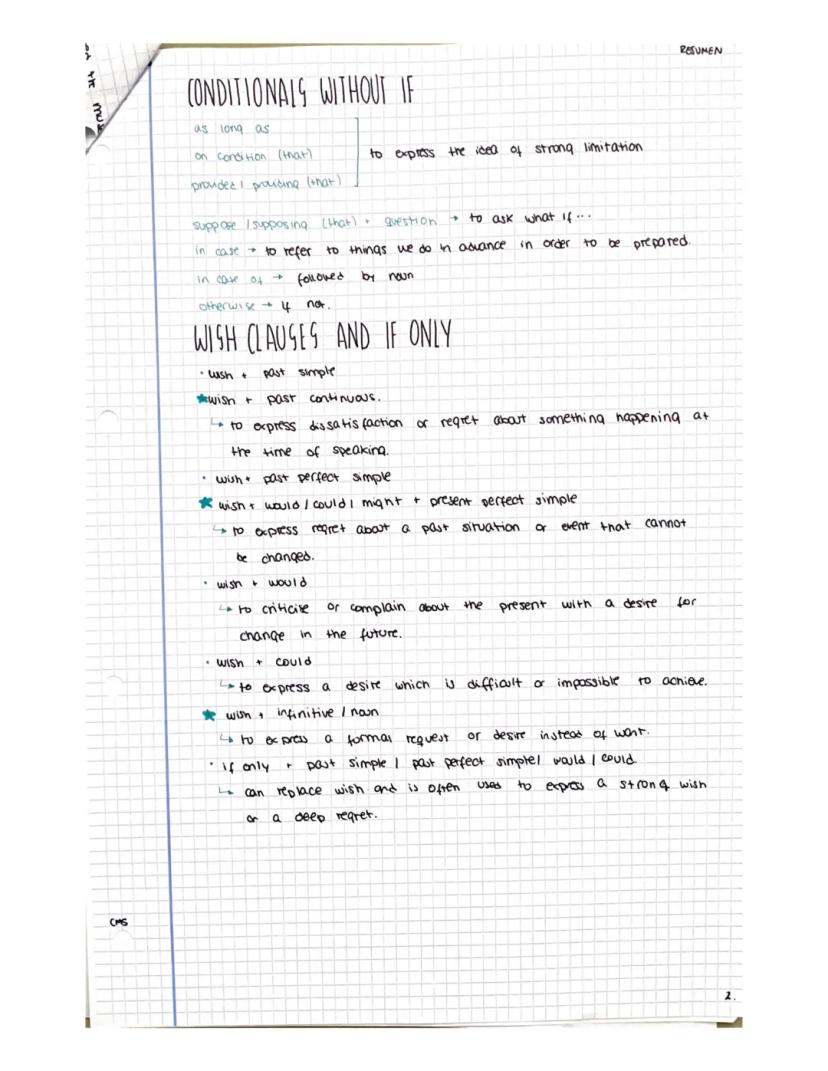 RESUMEN
CONDITIONALS WITHOUT IF
as long as
on condition (that)
to express the idea of strong limitation
provided / providing (that)
suppose / supposing (that) + question → to ask what if...
in case → to refer to things we do in advance in order to be prepared.
in case of → followed by noun
otherwise → if not.
WISH CLAUSES AND IF ONLY
· wish + past simple
★ wish + past continuous.
↳ to express dissatisfaction or regret about something happening at
the time of speaking.
· wish + past perfect simple
★ wish + would / could / might + present perfect simple
↳ to express regret about a past situation or event that cannot
be changed.
· wish + would
↳ to criticise or complain about the present with a desire for
change in the future.
· wish + could
↳ to express a desire which is difficult or impossible to achieve.
★ wish + infinitive / noun
↳ to express a formal request or desire instead of want.
· if only + past simple / past perfect simple / would / could
↳ can replace wish and is often used to express a strong wish
or a deep regret.
CMS
2.